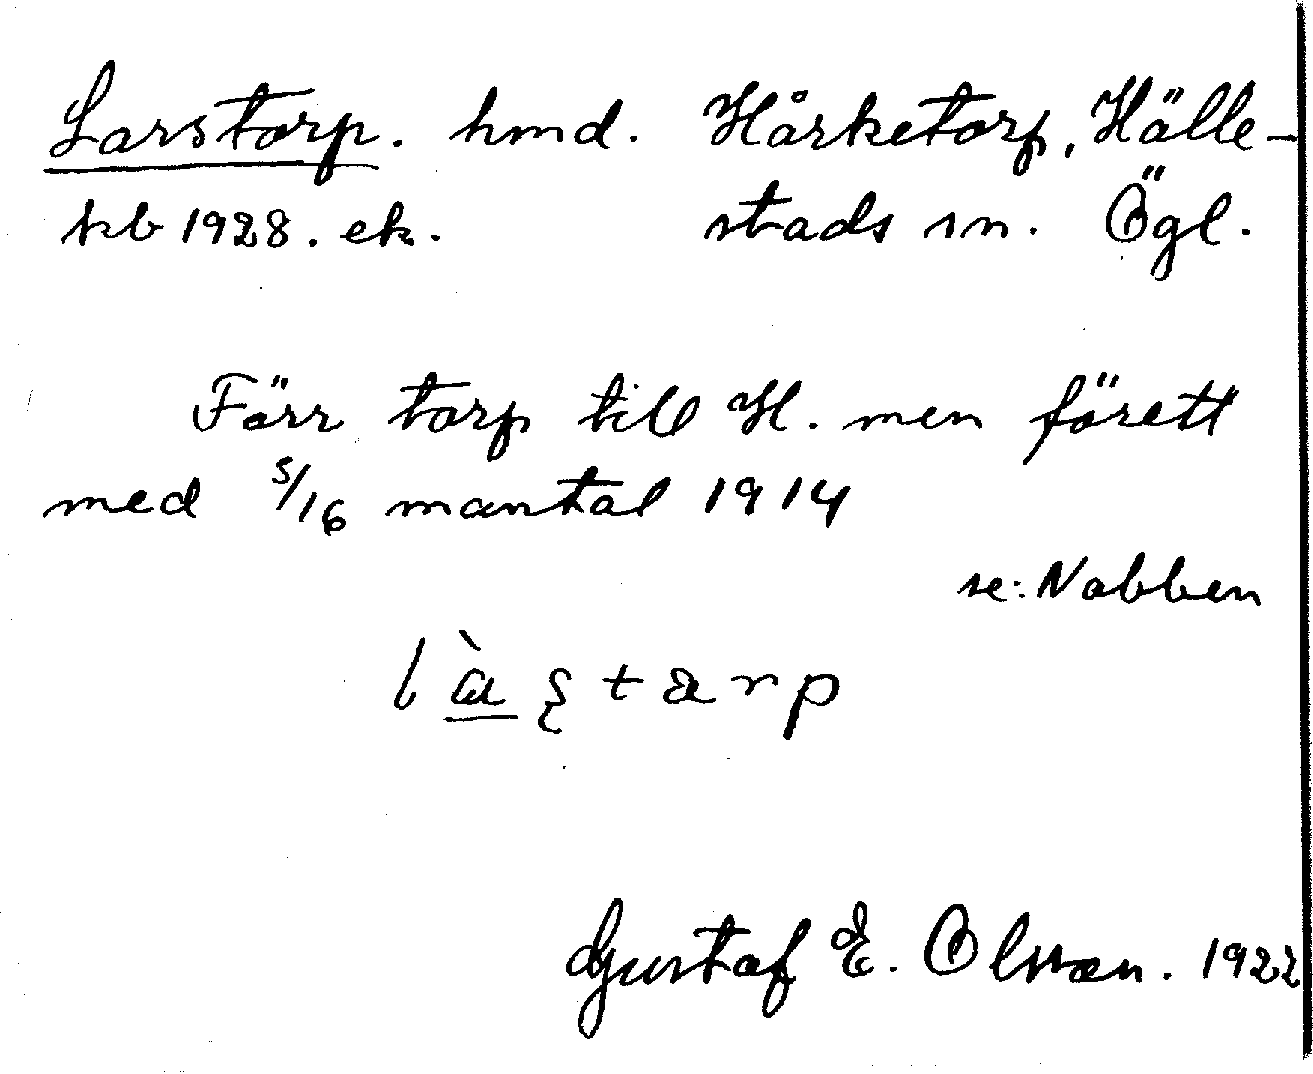 Larstorp. hmd. Hårketorp, Hälle-
kb 1928. ek. stads sn. Ögl.
Förr torp till H. men förett
med 5/16 mantal 1914
se: Nabben
Gustaf E. Olsson. 1922